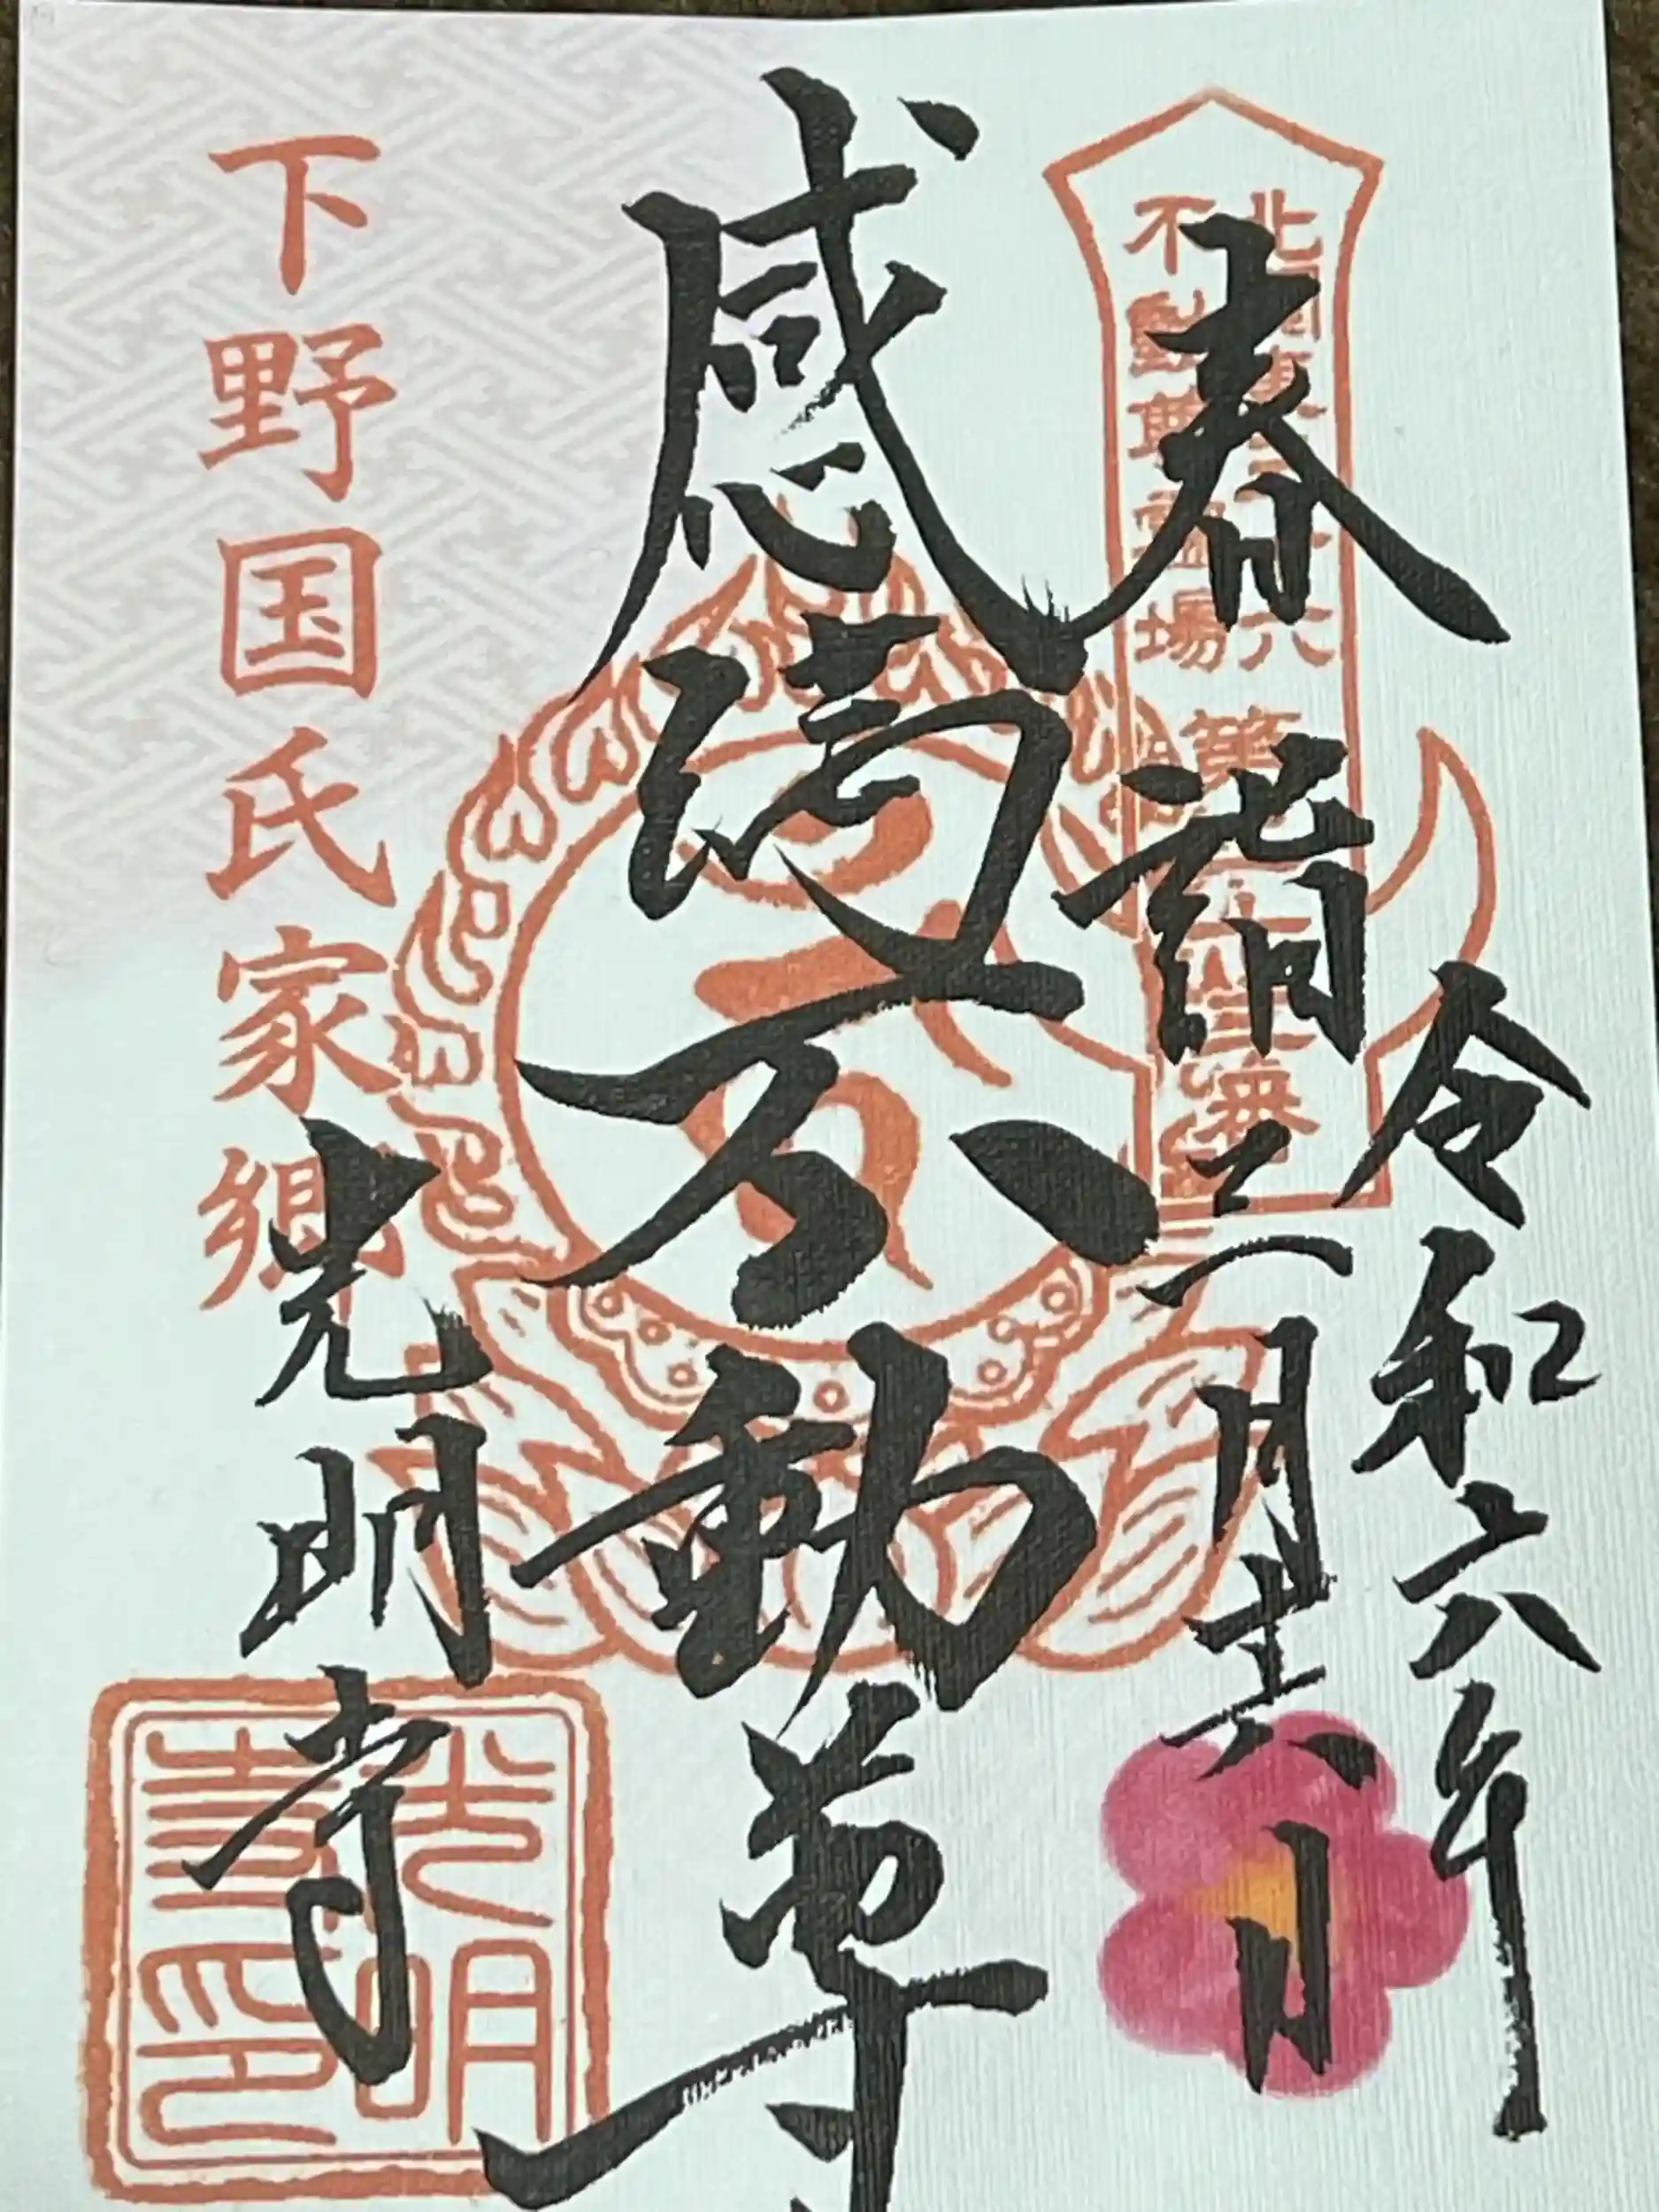 令和六年
春詣
二月十六日
北関東三十六
不動尊霊場
感満不動尊
下野国氏家郷
光明寺
光明
寺印